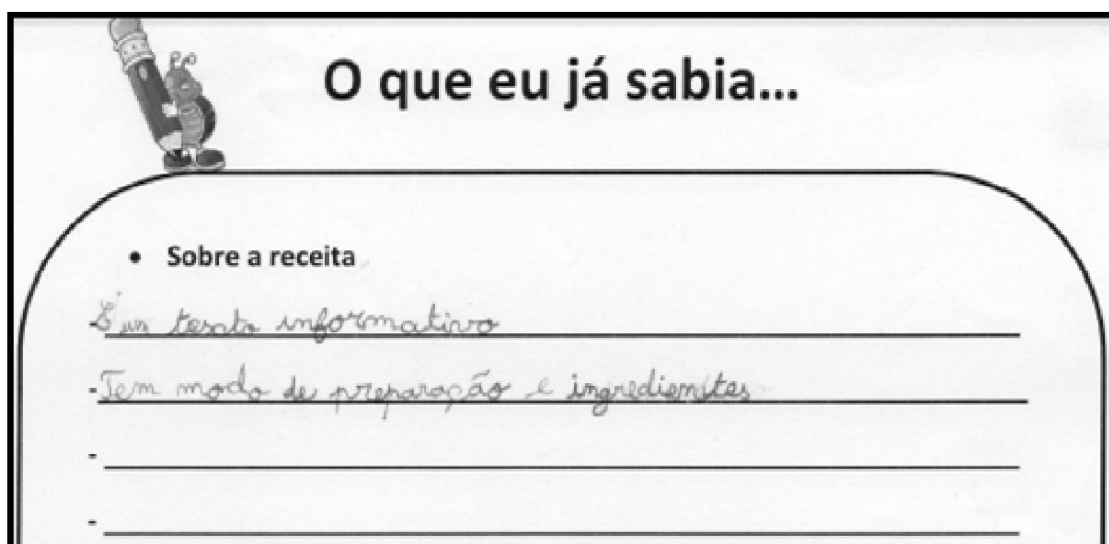 O que eu já sabia...
• Sobre a receita
- É um texto informativo
- Tem modo de preparação e ingredientes
-
-